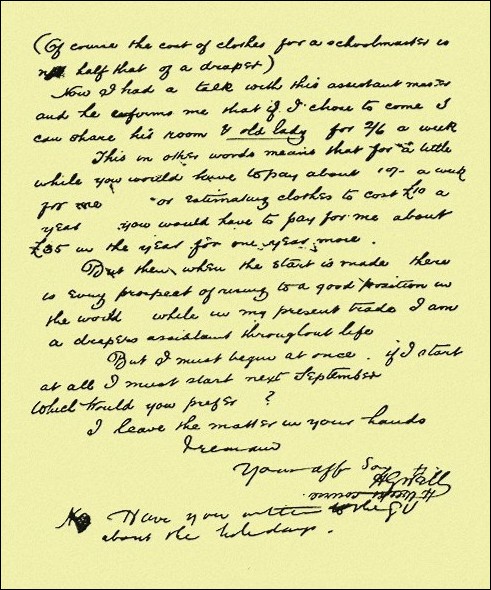 (Of course the cost of clothes for a schoolmaster is
not half that of a draper)
Now I had a talk with this assistant master
and he informs me that if I chose to come I
can share his room & old lady for 2/6 a week
This in other words means that for a little
while you would have to pay about 10/- a week
for me or estimating clothes to cost £10 a
year you would have to pay for me about
£35 in the year for one year more.
But then, when the start is made there
is every prospect of rising to a good position in
the world while in my present trade I am
a drapers assistant throughout life
But I must begin at once. if I start
at all I must start next September
Which would you prefer ?
I leave the matter in your hands
I remain
Your aff Son
H G Wells
Have you written to the
about the holidays.